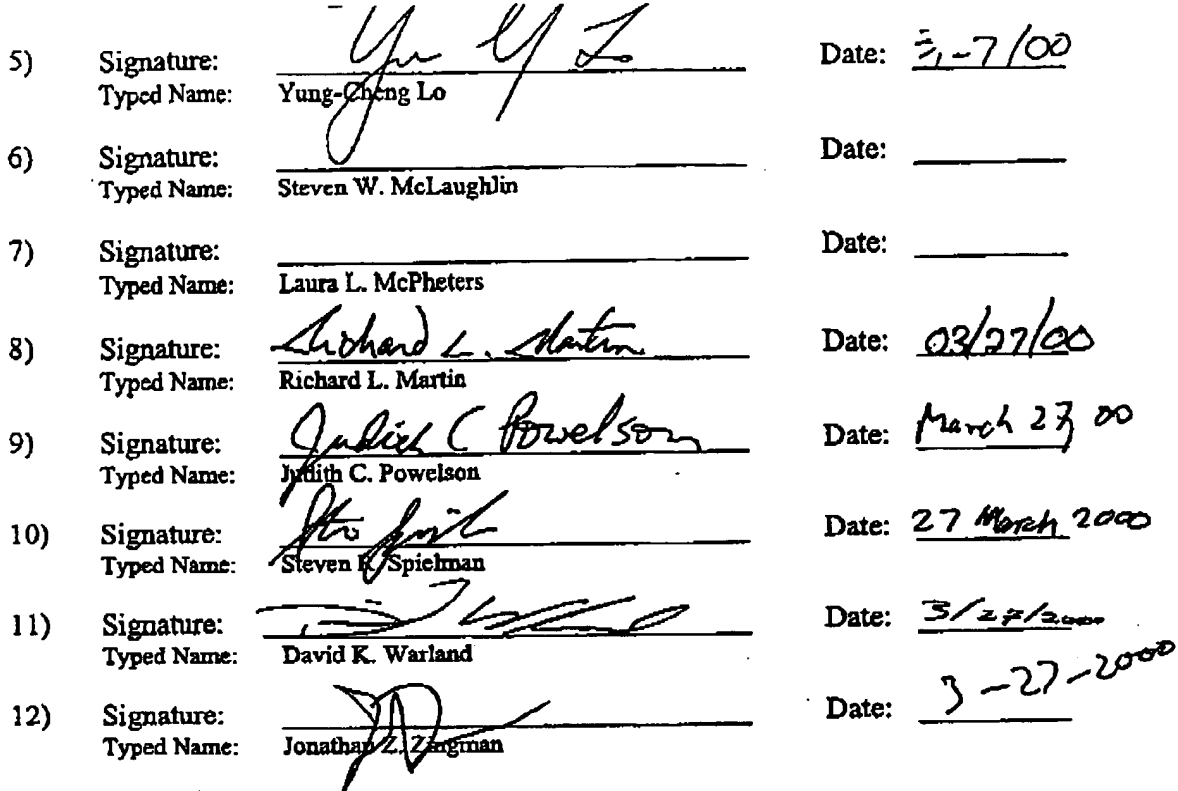 5) Signature: Yu Y Lo Date:
Typed Name: Yung-Cheng Lo
6) Signature: Date:
Typed Name: Steven W. McLaughlin
7) Signature: Date:
Typed Name: Laura L. McPheters
8) Signature: Richard L. Martin Date: 03/27/00
Typed Name: Richard L. Martin
9) Signature: Judith C Powelson Date: March 27, 00
Typed Name: Judith C. Powelson
10) Signature: Date: 27 March 2000
Typed Name: Steven R. Spielman
11) Signature: Date: 3/27/2000
Typed Name: David K. Warland
12) Signature: Date: 3-27-2000
Typed Name: Jonathan Z. Zingman